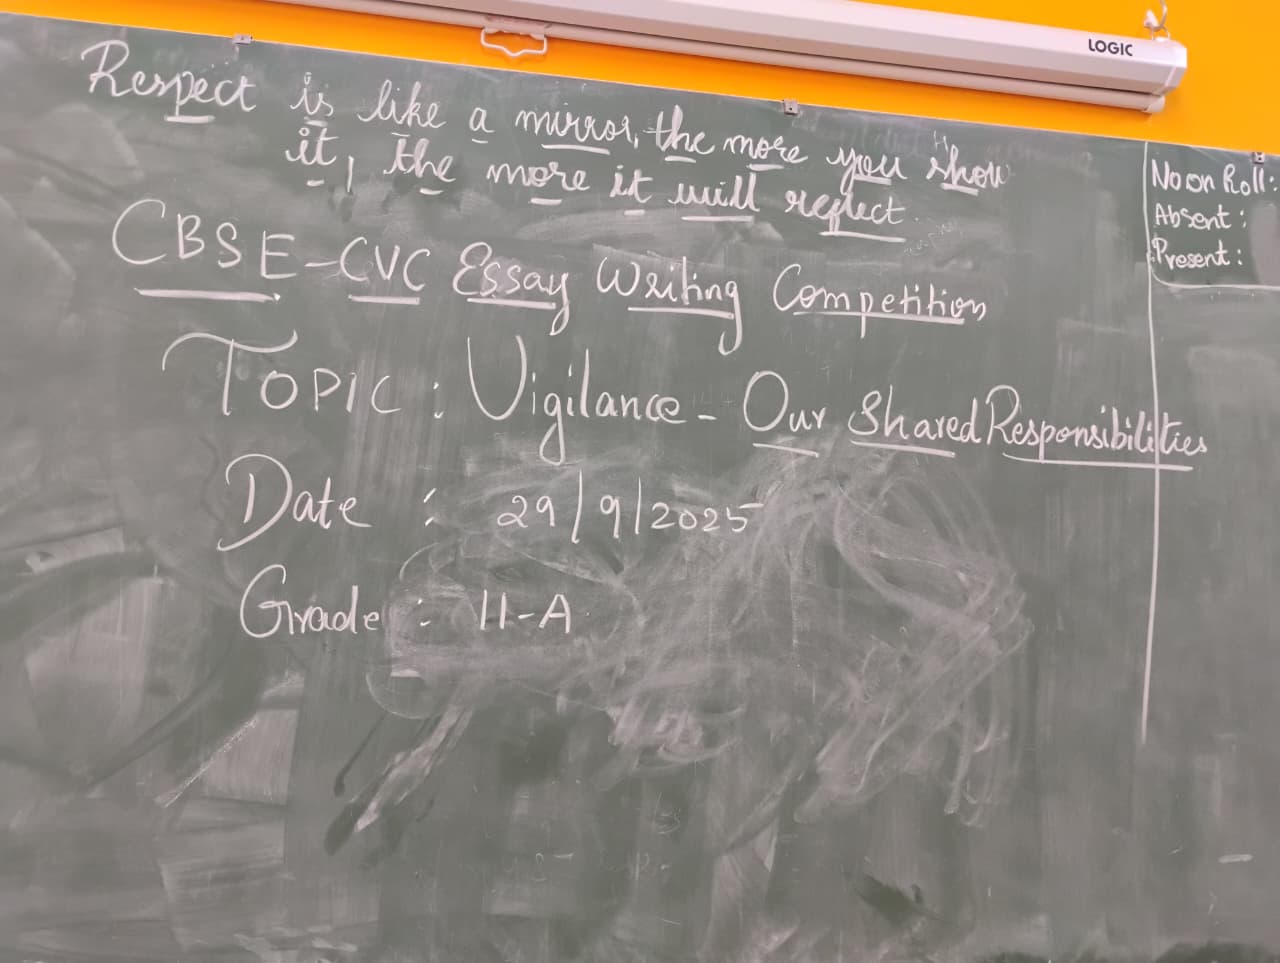 LOGIC
Respect is like a mirror, the more you show
it, the more it will reflect.
CBSE-CVC Essay Writing Competition
TOPIC : Vigilance - Our Shared Responsibilities
Date : 29/9/2025
Grade : 11-A
No on Roll:
Absent :
Present :